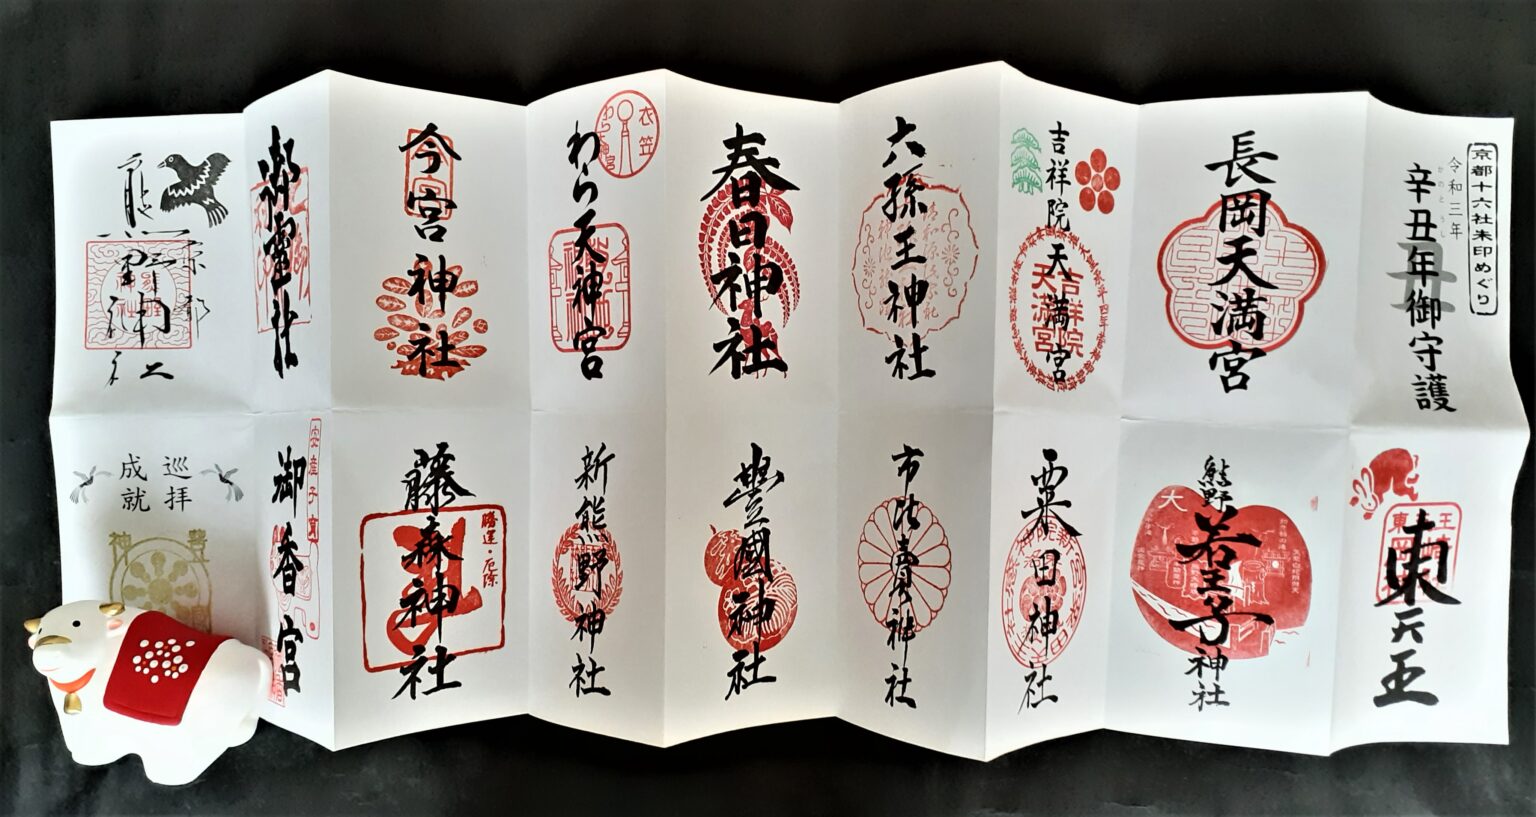 京都十六社朱印めぐり
令和三年
かのとうし
辛丑年御守護
丑
長岡天満宮
吉祥院天満宮
吉祥院
天満宮
六孫王神社
春日神社
わら天神宮
衣笠
わら天神宮
今宮神社
御霊社
熊野神社
京都
東天王
熊野若王子神社
大
粟田神社
市比賣神社
豐國神社
新熊野神社
藤森神社
勝運・厄除
御香宮
安産子育
巡拝
成就